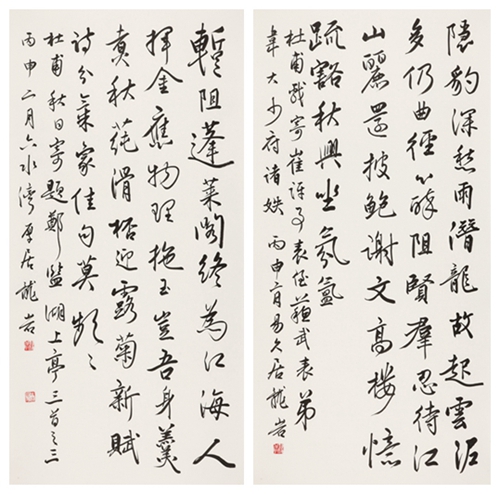 隱豹深愁雨潛龍故起雲泥
多仍曲徑心醉阻賢羣忍待江
山麗還披鮑謝文高樓憶
疏豁秋興坐氛氳
杜甫戲寄崔評事表侄蘇武表弟
韋大少府諸姪 丙申二月易久居龍岩
暫阻蓬萊閣終為江海人
揮金應物理拖玉豈吾身羹
煮秋蒓滑杯迎露菊新賦
詩分氣象佳句莫頻〻
杜甫秋日寄題鄭監湖上亭三首之三
丙申二月六水灣厚居龍岩